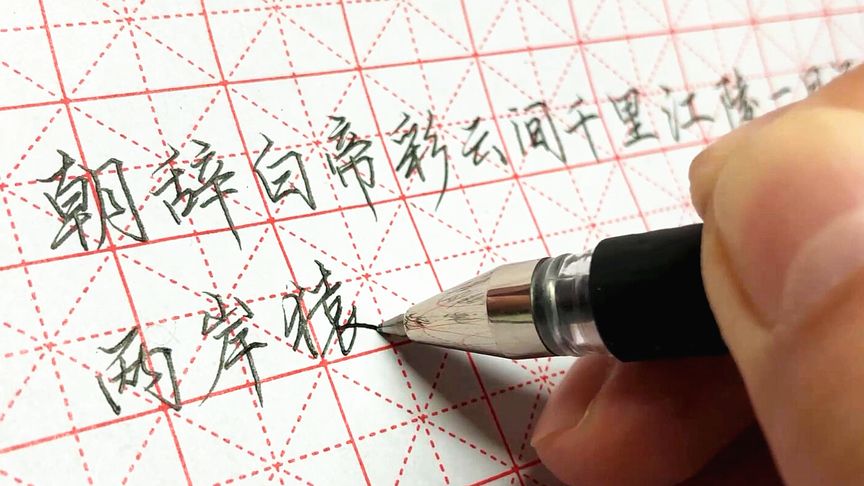 朝辞白帝彩云间千里江陵一日
两岸猿